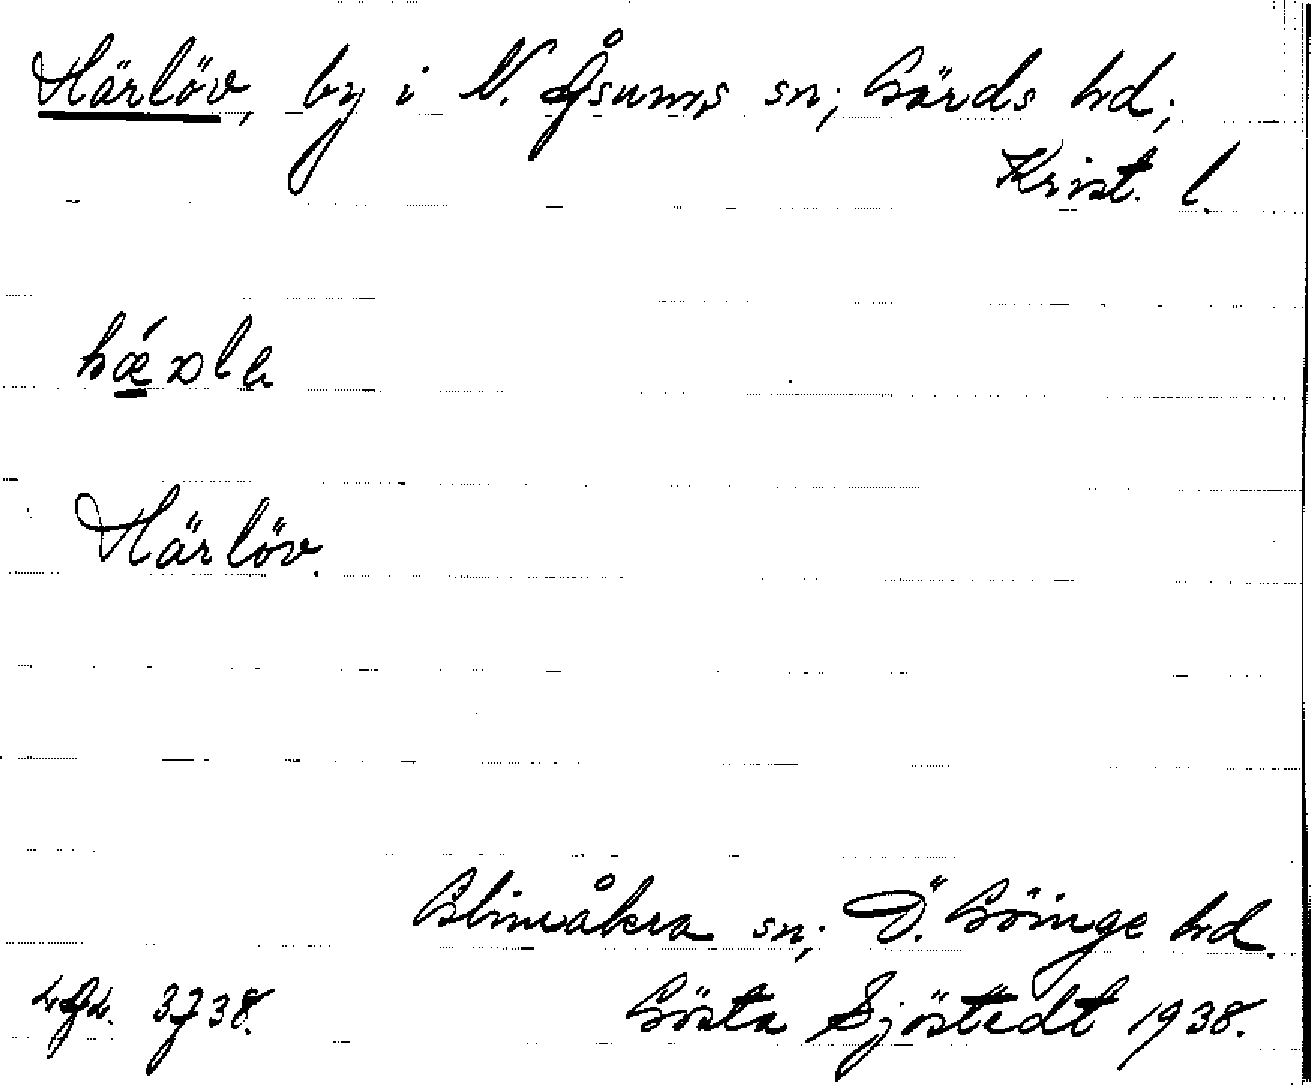 Härlöv, by i N. Åsums sn; Gärds hd;
Krist. l.
Härlöv.
Glimåkra sn; Ö. Göinge hd.
Gösta Sjöstedt 1938.